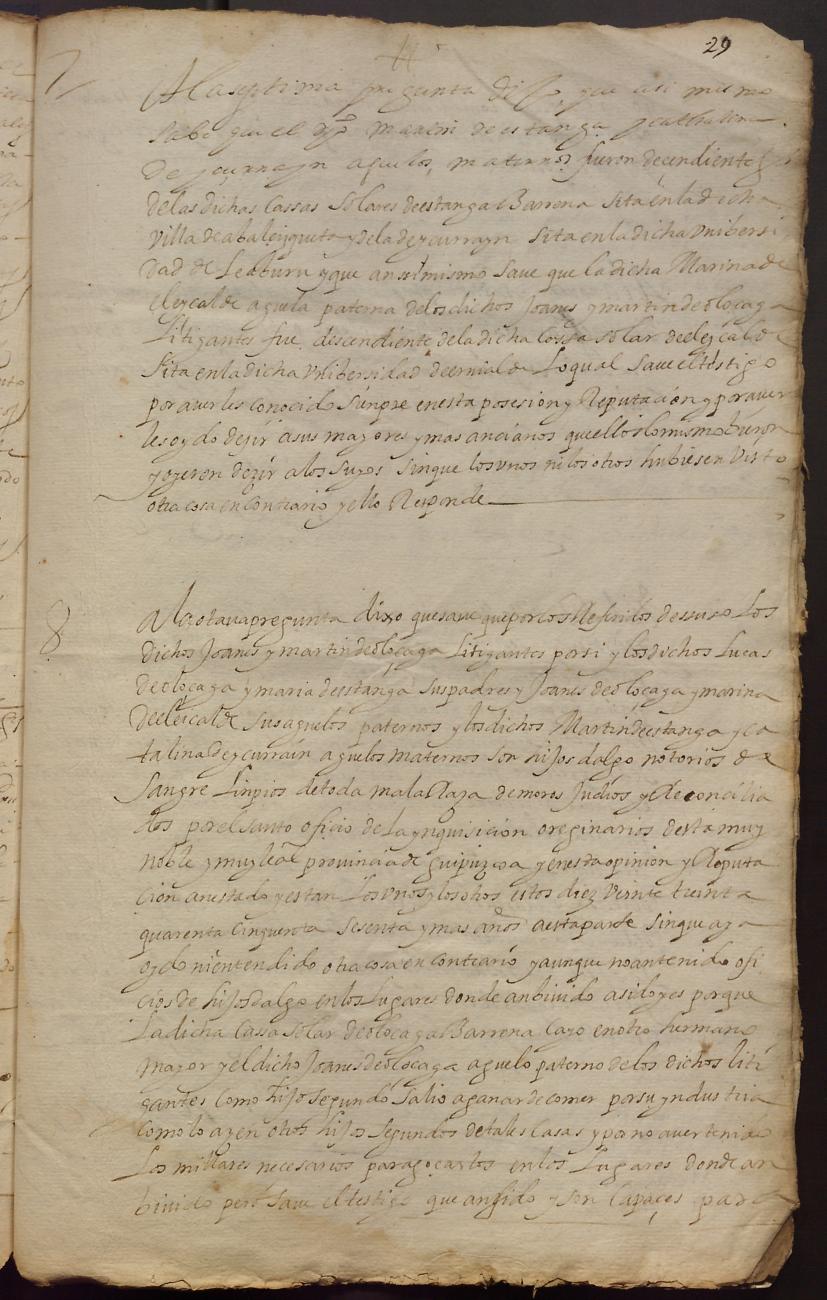 29
7
A la septima pregunta dijo, que asi mismo
save que el dho Martin de estanga y cathalina
de ycurrayn aguelos maternos fueron decendientes
de las dichas Cassas Solares de estanga Barrena Sita en la dicha
villa de abalcizqueta y de la de ycurrayn sita en la dicha Unibersi
dad de Leaburu y que ansimismo Save que la dicha Marina de
eleycalde aguela paterna de los dichos Joanes y martin de oloçaga
Litigantes fue, descendiente de la dicha Cassa solar de eleycalde
Sita en la dicha Unibersidad de ernialde Lo qual Save el testigo
por averles conocido Sienpre en esta posesion y Reputacion y por aver
les oydo dezir a sus mayores y mas ancianos que ellos lo mismo bieron
y oyeron dezir a los Suyos Sin que los unos ni los otros hubiesen Visto
otra cosa en contrario y ello Responde
8
A la otava pregunta dixo que save que por los Referidos de suso Los
dichos Joanes y martin de oloçaga Litigantes por si y los dichos Lucas
de oloçaga y maria de estanga Sus padres y Joanes de oloçaga y marina
de eleicalde Sus aguelos paternos y los dichos Martin de estanga y ca
talina de ycurrain aguelos maternos son hijos dalgo notorios de
Sangre Linpios de toda mala Raza de moros Judios y Reconcilia
dos por el santo oficio de la ynquisicion oreginarios desta muy
noble y muy leal provincia de guipuzcoa y en esta opinion y Reputa
cion an estado y estan Los unos y los otros estos diez veinte treinta
quarenta cinquenta sesenta y mas años a esta parte sin que aya
oydo ni entendido otra cosa en contrario y aunque no an tenido ofi
cios de hijos dalgo en los Lugares donde an bivido a sido y es porque
La dicha Cassa Solar de oloçaga Barrena Cayo en otro hermano
mayor y el dicho Joanes de oloçaga aguelo paterno de los dichos liti
gantes Como hijo segundo Salio a ganar de comer por su yndustria
Como lo azen otros hijos Segundos de tales Casas y por no aver tenido
Los millares necesarios para goçarlos en los Lugares donde an
bivido pero Save el testigo que an sido y son Capaçes para